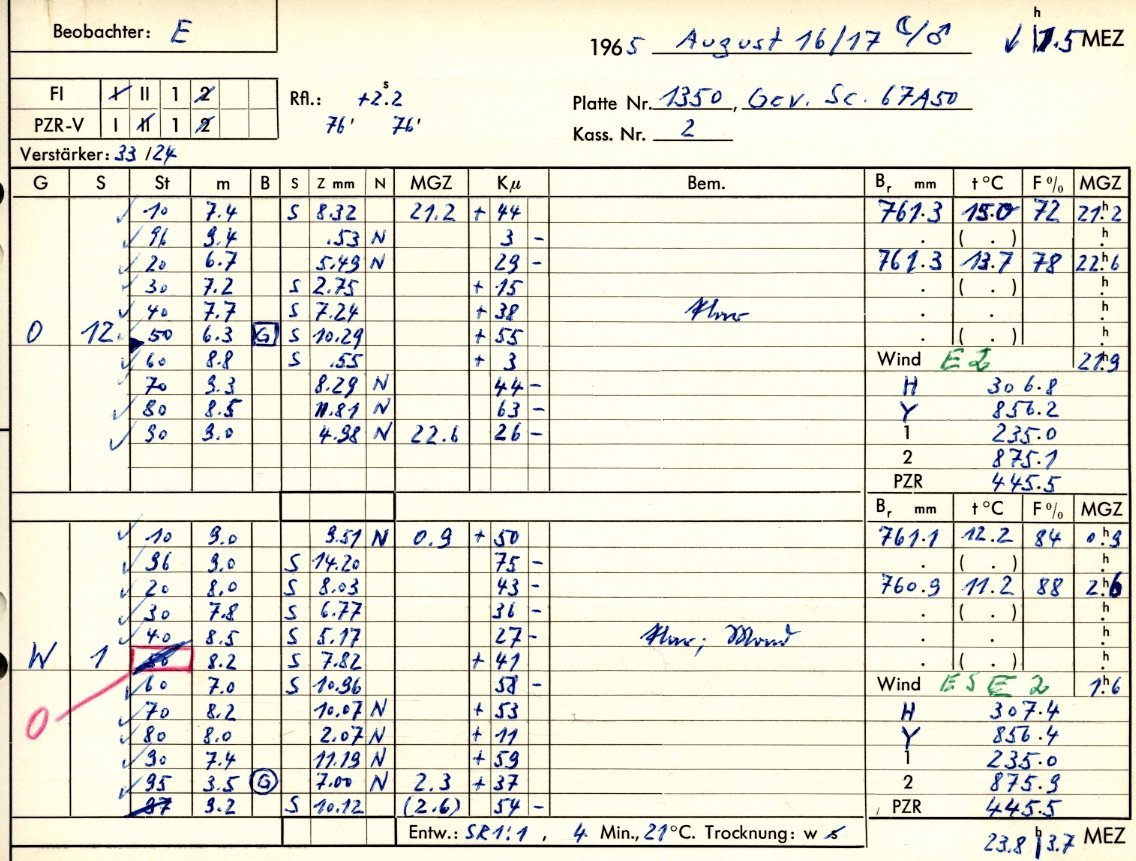 Beobachter: E
1965 August 16/17 ☾/♂ 1.5 h MEZ
FI I II 1 2 Rfl.: +2.2 s
PZR-V I II 1 2 76' 76'
Platte Nr. 1350, Gev. Sc. 67A50
Kass. Nr. 2
Verstärker: 33 /24
G S St m B S Z mm N MGZ Kμ Bem. Br mm t °C F % MGZ
10 7.4 S 8.32 21.2 + 44 761.3 15.0 72 21.h2
96 9.4 .53 N 3 - . ( . ) h
20 6.7 5.49 N 29 - 761.3 13.7 78 22.h6
30 7.2 S 2.75 + 15 . ( . ) h
40 7.7 S 7.24 + 38 klar . . h
O 12 50 6.3 G S 10.29 + 55 . ( . ) h
60 8.8 S .55 + 3 Wind E 2 21.h9
70 9.3 8.29 N 44 - H 306.8
80 8.5 11.81 N 63 - Y 856.2
90 9.0 4.98 N 22.6 26 - 1 235.0
2 875.1
PZR 445.5
Br mm t °C F % MGZ
10 9.0 9.51 N 0.9 + 50 761.1 12.2 84 0.h9
96 9.0 S 14.20 75 - . ( . ) h
20 8.0 S 8.03 43 - 760.9 11.2 88 2.h6
30 7.8 S 6.77 36 - . ( . ) h
40 8.5 S 5.17 27 - klar; Mond . . h
W 1 50 8.2 S 7.82 + 41 . ( . ) h
60 7.0 S 10.96 58 - Wind ESE 2 1.h6
O 70 8.2 10.07 N + 53 H 307.4
80 8.0 2.07 N + 11 Y 856.4
90 7.4 11.19 N + 59 1 235.0
95 3.5 G 7.00 N 2.3 + 37 2 875.9
97 9.2 S 10.12 (2.6) 54 - PZR 445.5
Entw.: SR 1:1, 4 Min., 21°C. Trocknung: w s
23.8 h 3.7 MEZ